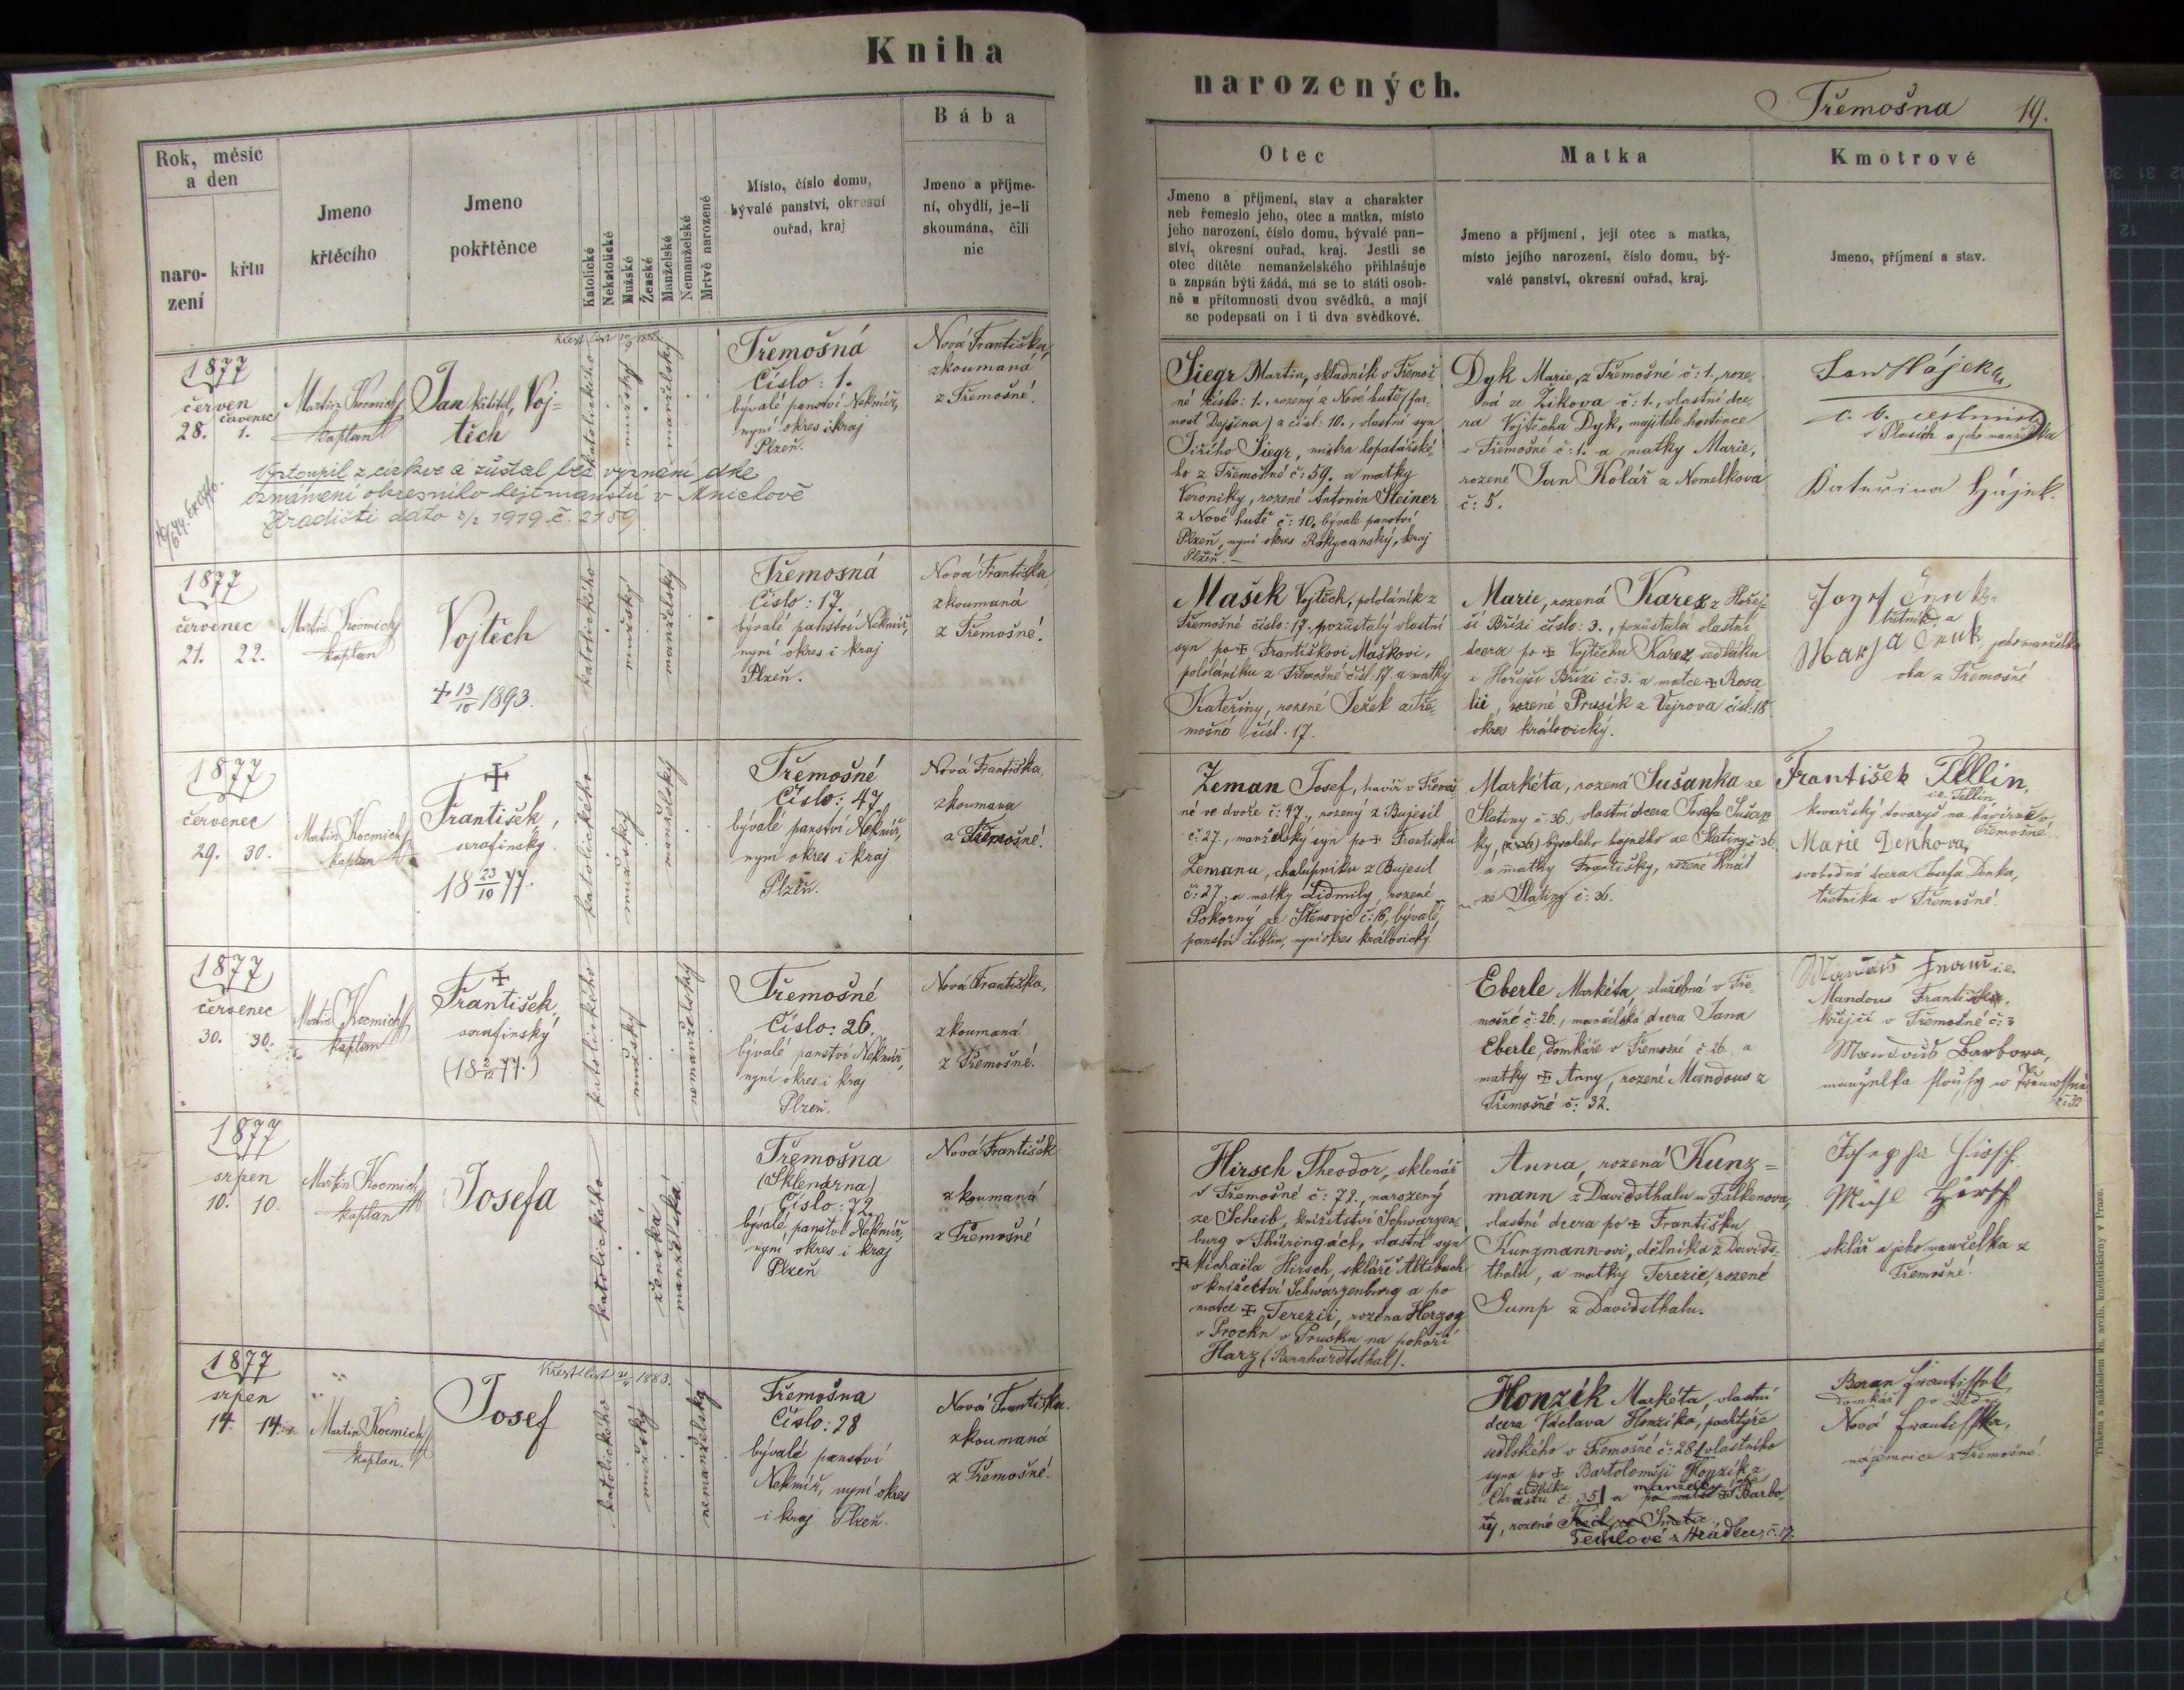 Kniha
narozených.
Třemošna 19.
Rok, měsíc
a den
naro-
zení
křtu
Jmeno
křtěcího
Jmeno
pokřtěnce
Katolické
Nekatolické
Mužské
Ženské
Manželské
Nemanželské
Mrtvě narozené
Místo, číslo domu,
bývalé panství, okresní
ouřad, kraj
Bába
Jmeno a příjme-
ní, obydlí, je-li
skoumána, čili
nic
Otec
Jmeno a příjmení, stav a charakter
neb řemeslo jeho, otec a matka, místo
jeho narození, číslo domu, bývalé pan-
ství, okresní ouřad, kraj. Jestli se
otec dítěte nemanželského přihlašuje
a zapsán býti žádá, má se to státi osob-
ně u přítomnosti dvou svědků, a mají
se podepsati on i ti dva svědkové.
Matka
Jmeno a příjmení, její otec a matka,
místo jejího narození, číslo domu, bý-
valé panství, okresní ouřad, kraj.
Kmotrové
Jmeno, příjmení a stav.
1877
červen
červenec
28. 1.
Martin Kocmich
kaplan
Jan křtitel, Voj=
těch
katolického
mužský
manželský
Třemošná
Číslo: 1.
bývalé panství Nekmíř,
nyní okres i kraj
Plzeň.
Nová Františka,
zkoumaná
z Třemošné.
Vystoupil z církve a zůstal bez vyznání dle
oznámení okresního hejtmanství v Mnichově
Hradišti dato 3/2 1919 č. 2189
Siegr Martin, skladník v Třemoš
né číslo: 1., rozený z Nové hutě (far-
nost Dejšina) z čísl: 10., vlastní syn
Jiřího Siegr, mistra lopatářské-
ho z Třemošné č: 59. a matky
Veroniky, rozené Antonín Steiner
z Nové hutě č: 10. bývalé panství
Plzeň, nyní okres Rokycanský, kraj
Plzeň.
Dyk Marie, z Třemošné č: 1., roze-
ná ze Žikova č: 1., vlastní dce-
ra Vojtěcha Dyk, majitele hostince
v Třemošné č: 1. a matky Marie,
rozené Jan Kolář z Nemelkova
č: 5.
Jan Hájek
c. k. cestmistr
v Plasích a jeho manželka
Katuřina Hájek.
1877
červenec
21. 22.
Martin Kocmich
kaplan
Vojtěch
+ 13/10 1893.
katolického
mužský
manželský
Třemosná
Číslo: 17.
bývalé panství Nekmíř,
nyní okres i kraj
Plzeň.
Nová Františka
zkoumaná
z Třemošné.
Mašek Vojtěch, pololáník z
Třemošné číslo: 17. pozůstalý vlastní
syn po + Františkovi Maškovi,
pololáníku z Třemošné čísl: 17. a matky
Kateřiny, rozené Ježek z Tře-
mošné čísl. 17.
Marie, rozená Karez z Hořej-
ší Břízi číslo: 3., pozůstalá vlastní
dcera po + Vojtěchu Karez, sedláku
z Hořejší Břízi č: 3. a matce + Rosa
lii, rozené Prusík z Vejrova čísl: 18
okres královický.
jeho manželka
oba z Třemošné
1877
červenec
29. 30.
Martin Kocmich
kaplan
+
František,
serafínský
18 23/10 77.
katolického
mužský
manželský
Třemošné
Číslo: 47
bývalé panství Nekmíř,
nyní okres i kraj
Plzeň.
Nová Františka,
zkoumana
z Třemošné.
Zeman Josef, havíř v Třemoš
né ve dvoře č: 47., rozený z Bujesil
č: 27., manželský syn po + Františku
Zemanu, chalupníku z Bujesil
č: 27. a matky Lidmily, rozené
Pokorný ze Stěnovic č: 16, bývalé
panství Liblín, nyní okres královický
Markéta, rozená Sušanka ze
Slatiny č: 36., vlastní dcera Josefa Sušan
ky, bývalého hajného ze Slatiny č: 36
a matky Františky, rozené Hnát
ze Slatiny č: 36.
František Tellin,
i.e. Tellin,
kovařský tovaryš na
Třemošné.
Marie Denkova,
svobodná dcera Josefa Denka,
třetníka v Třemošné.
1877
červenec
30. 30.
Martin Kocmich
kaplan
+
František,
serafinský
(18 2/12 77.)
katolického
mužský
nemanželský
Třemošné
Číslo: 26.
bývalé panství Nekmíř,
nyní okres i kraj
Plzeň.
Nová Františka,
zkoumaná
z Třemošné.
Eberle Markéta, služebná v Tře-
mošné č: 26., manželská dcera Jana
Eberle, domkáře v Třemošné č: 26. a
matky + Anny, rozené Mandous z
Třemošné č: 32.
i.e.
Mandous František,
krejčí v Třemošné č: 3
Mandous Barbora,
č: 32
1877
srpen
10. 10.
Martin Kocmich
kaplan
Josefa
katolického
ženská
manželská
Třemošna
(Sklenárna)
Číslo: 72.
bývalé panství Nekmíř,
nyní okres i kraj
Plzeň
Nová Františk
zkoumaná
z Třemošné
Hirsch Theodor, sklenář
v Třemošné č: 72., narozený
ze Scheib, knížetství Schwarzen-
burg v Thüringách, vlastní syn
+ Michaila Hirsch, skláře Altsbach
v knížectví Schwarzenburg a po
matce + Terezii, rozena Herzog
v Prockn v Prusku na pohoří
Harz (Bernhardtsthal).
Anna, rozená Kunz=
mann z Davidsthalu u Falkenova,
vlastní dcera po + Františku
Kunzmann-ovi, dělníka z Davids-
thalu, a matky Terezie, rozené
Gump z Davidsthalu.
Josepha Hirsch
Hirsch
sklář a jeho manželka z
Třemošné.
1877
srpen
14. 14.
Martin Kocmich
kaplan.
Křest. list 21/4 1883.
Josef
katolického
mužský
nemanželský
Třemošna
Číslo: 28
bývalé panství
Nekmíř, nyní okres
i kraj Plzeň.
Nová Františka.
zkoumaná
z Třemošné.
Honzík Markéta, vlastní
dcera Václava Honzíka, pachtýře
sedlského v Třemošné č: 28 (vlastního
syna po + Bartoloměji Honzík z
Chrástu č: 35) a manželky Barbo-
ry, rozené
Terchlové z Hrádku, č. 17.
Beran František
domkář
Nová Františka,
nájemnice z Třemošné.
Tiskem a nákladem kn. arcib. knihtiskárny v Praze.